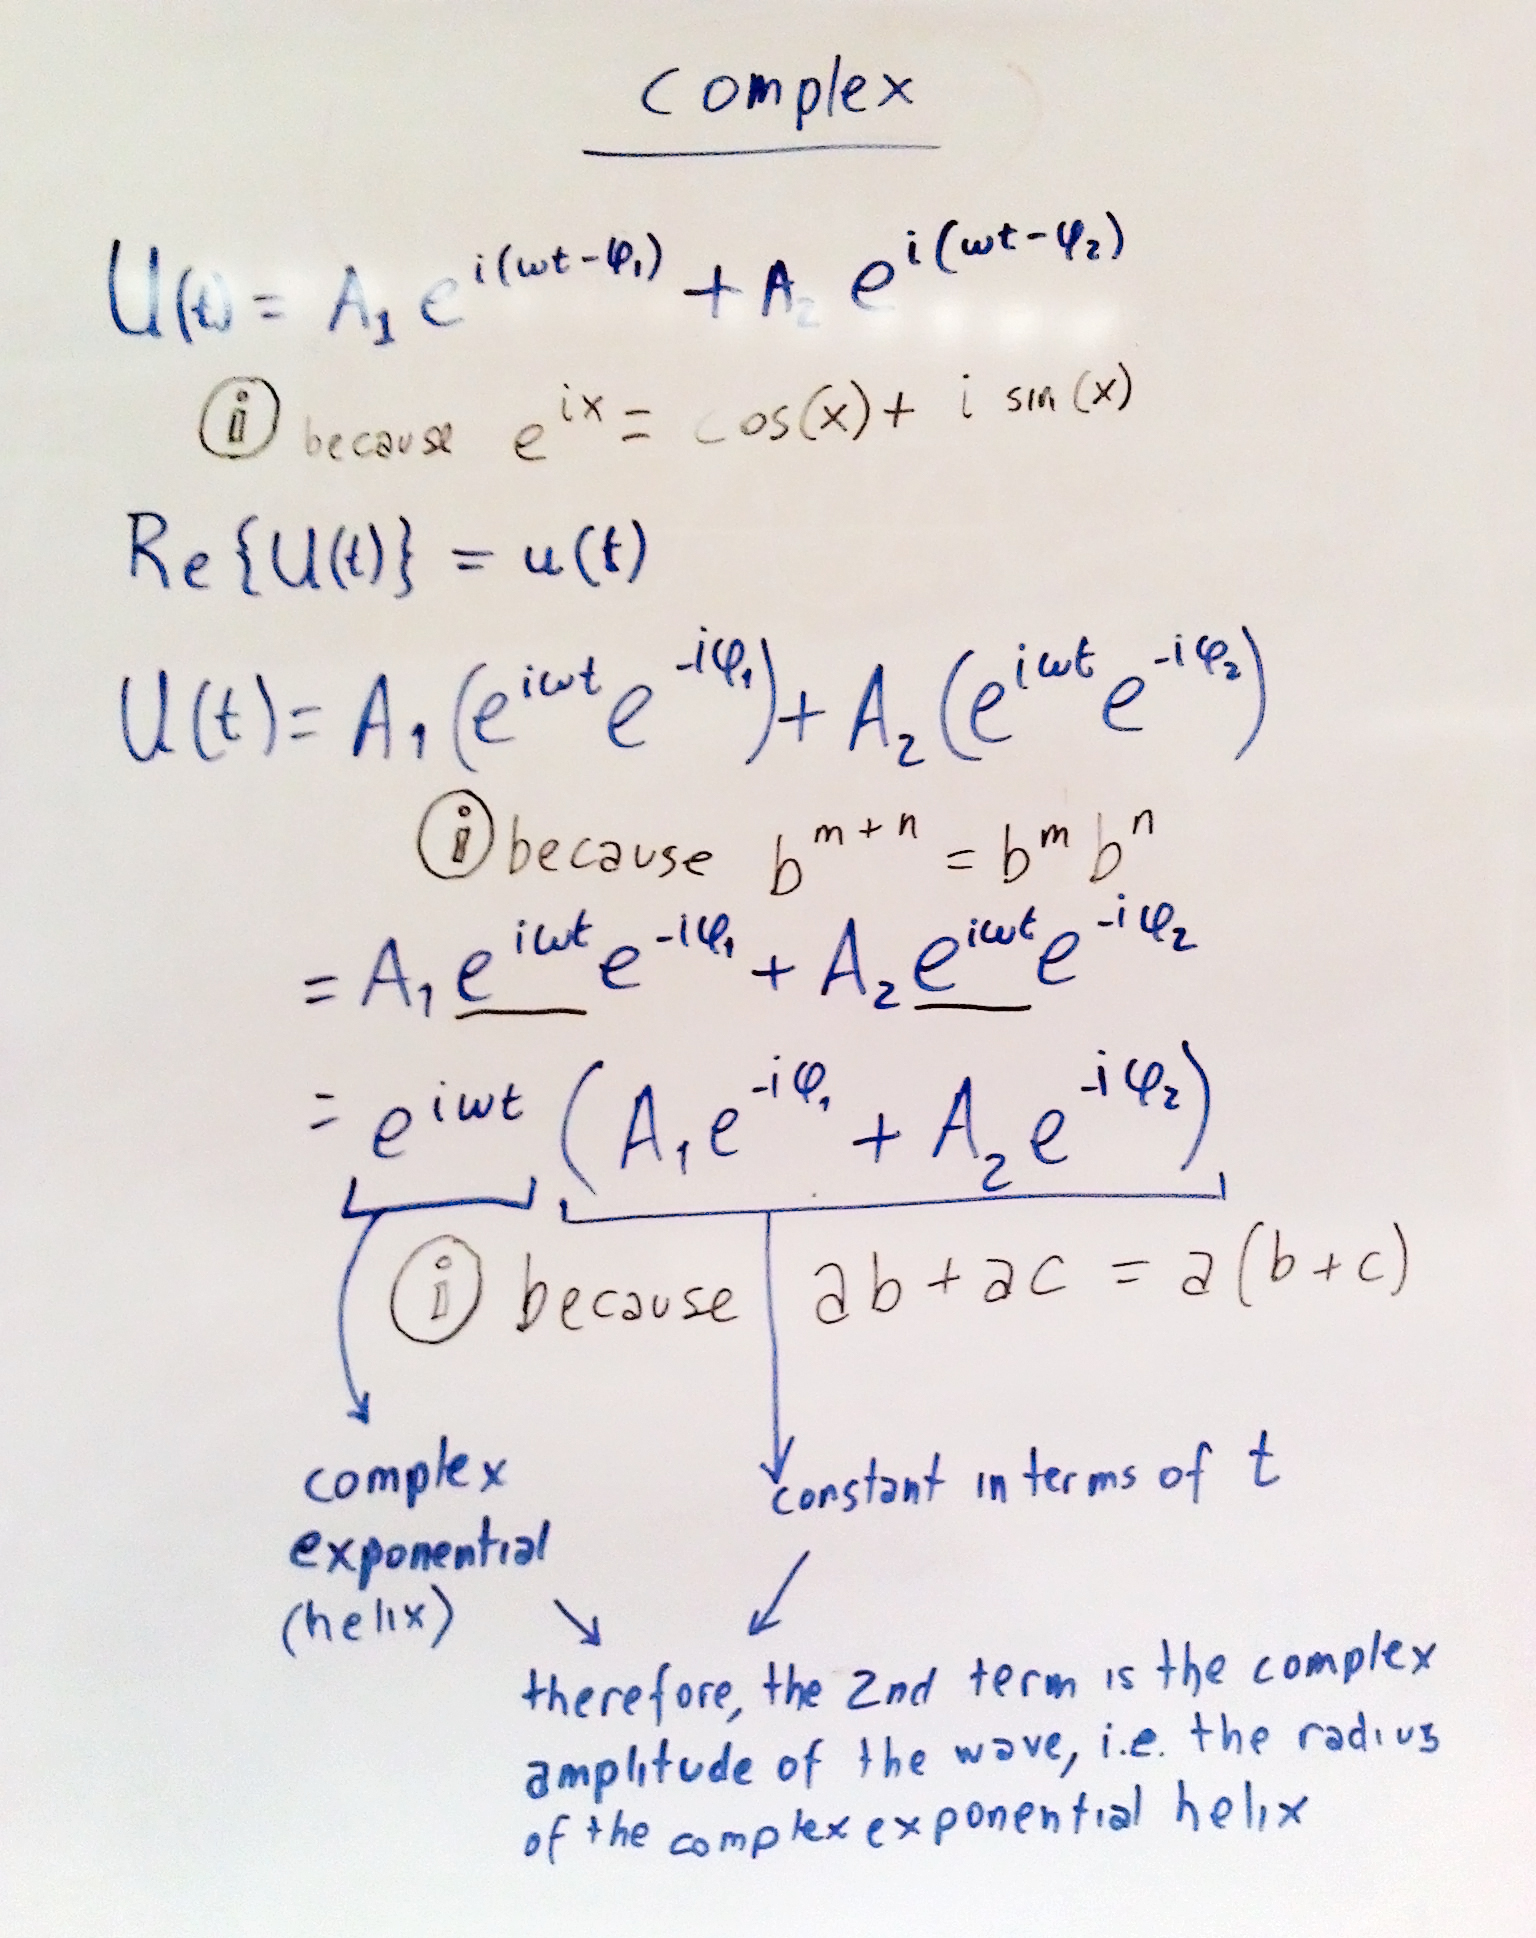 complex
U(t) = A₁ e^{i(ωt-φ₁)} + A₂ e^{i(ωt-φ₂)}
i because e^{ix} = cos(x) + i sin(x)
Re{U(t)} = u(t)
U(t) = A₁(e^{iωt} e^{-iφ₁}) + A₂(e^{iωt} e^{-iφ₂})
i because b^{m+n} = b^m b^n
= A₁ e^{iωt} e^{-iφ₁} + A₂ e^{iωt} e^{-iφ₂}
= e^{iωt} (A₁ e^{-iφ₁} + A₂ e^{-iφ₂})
i because ab + ac = a(b+c)
complex
exponential
(helix)
constant in terms of t
therefore, the 2nd term is the complex
amplitude of the wave, i.e. the radius
of the complex exponential helix